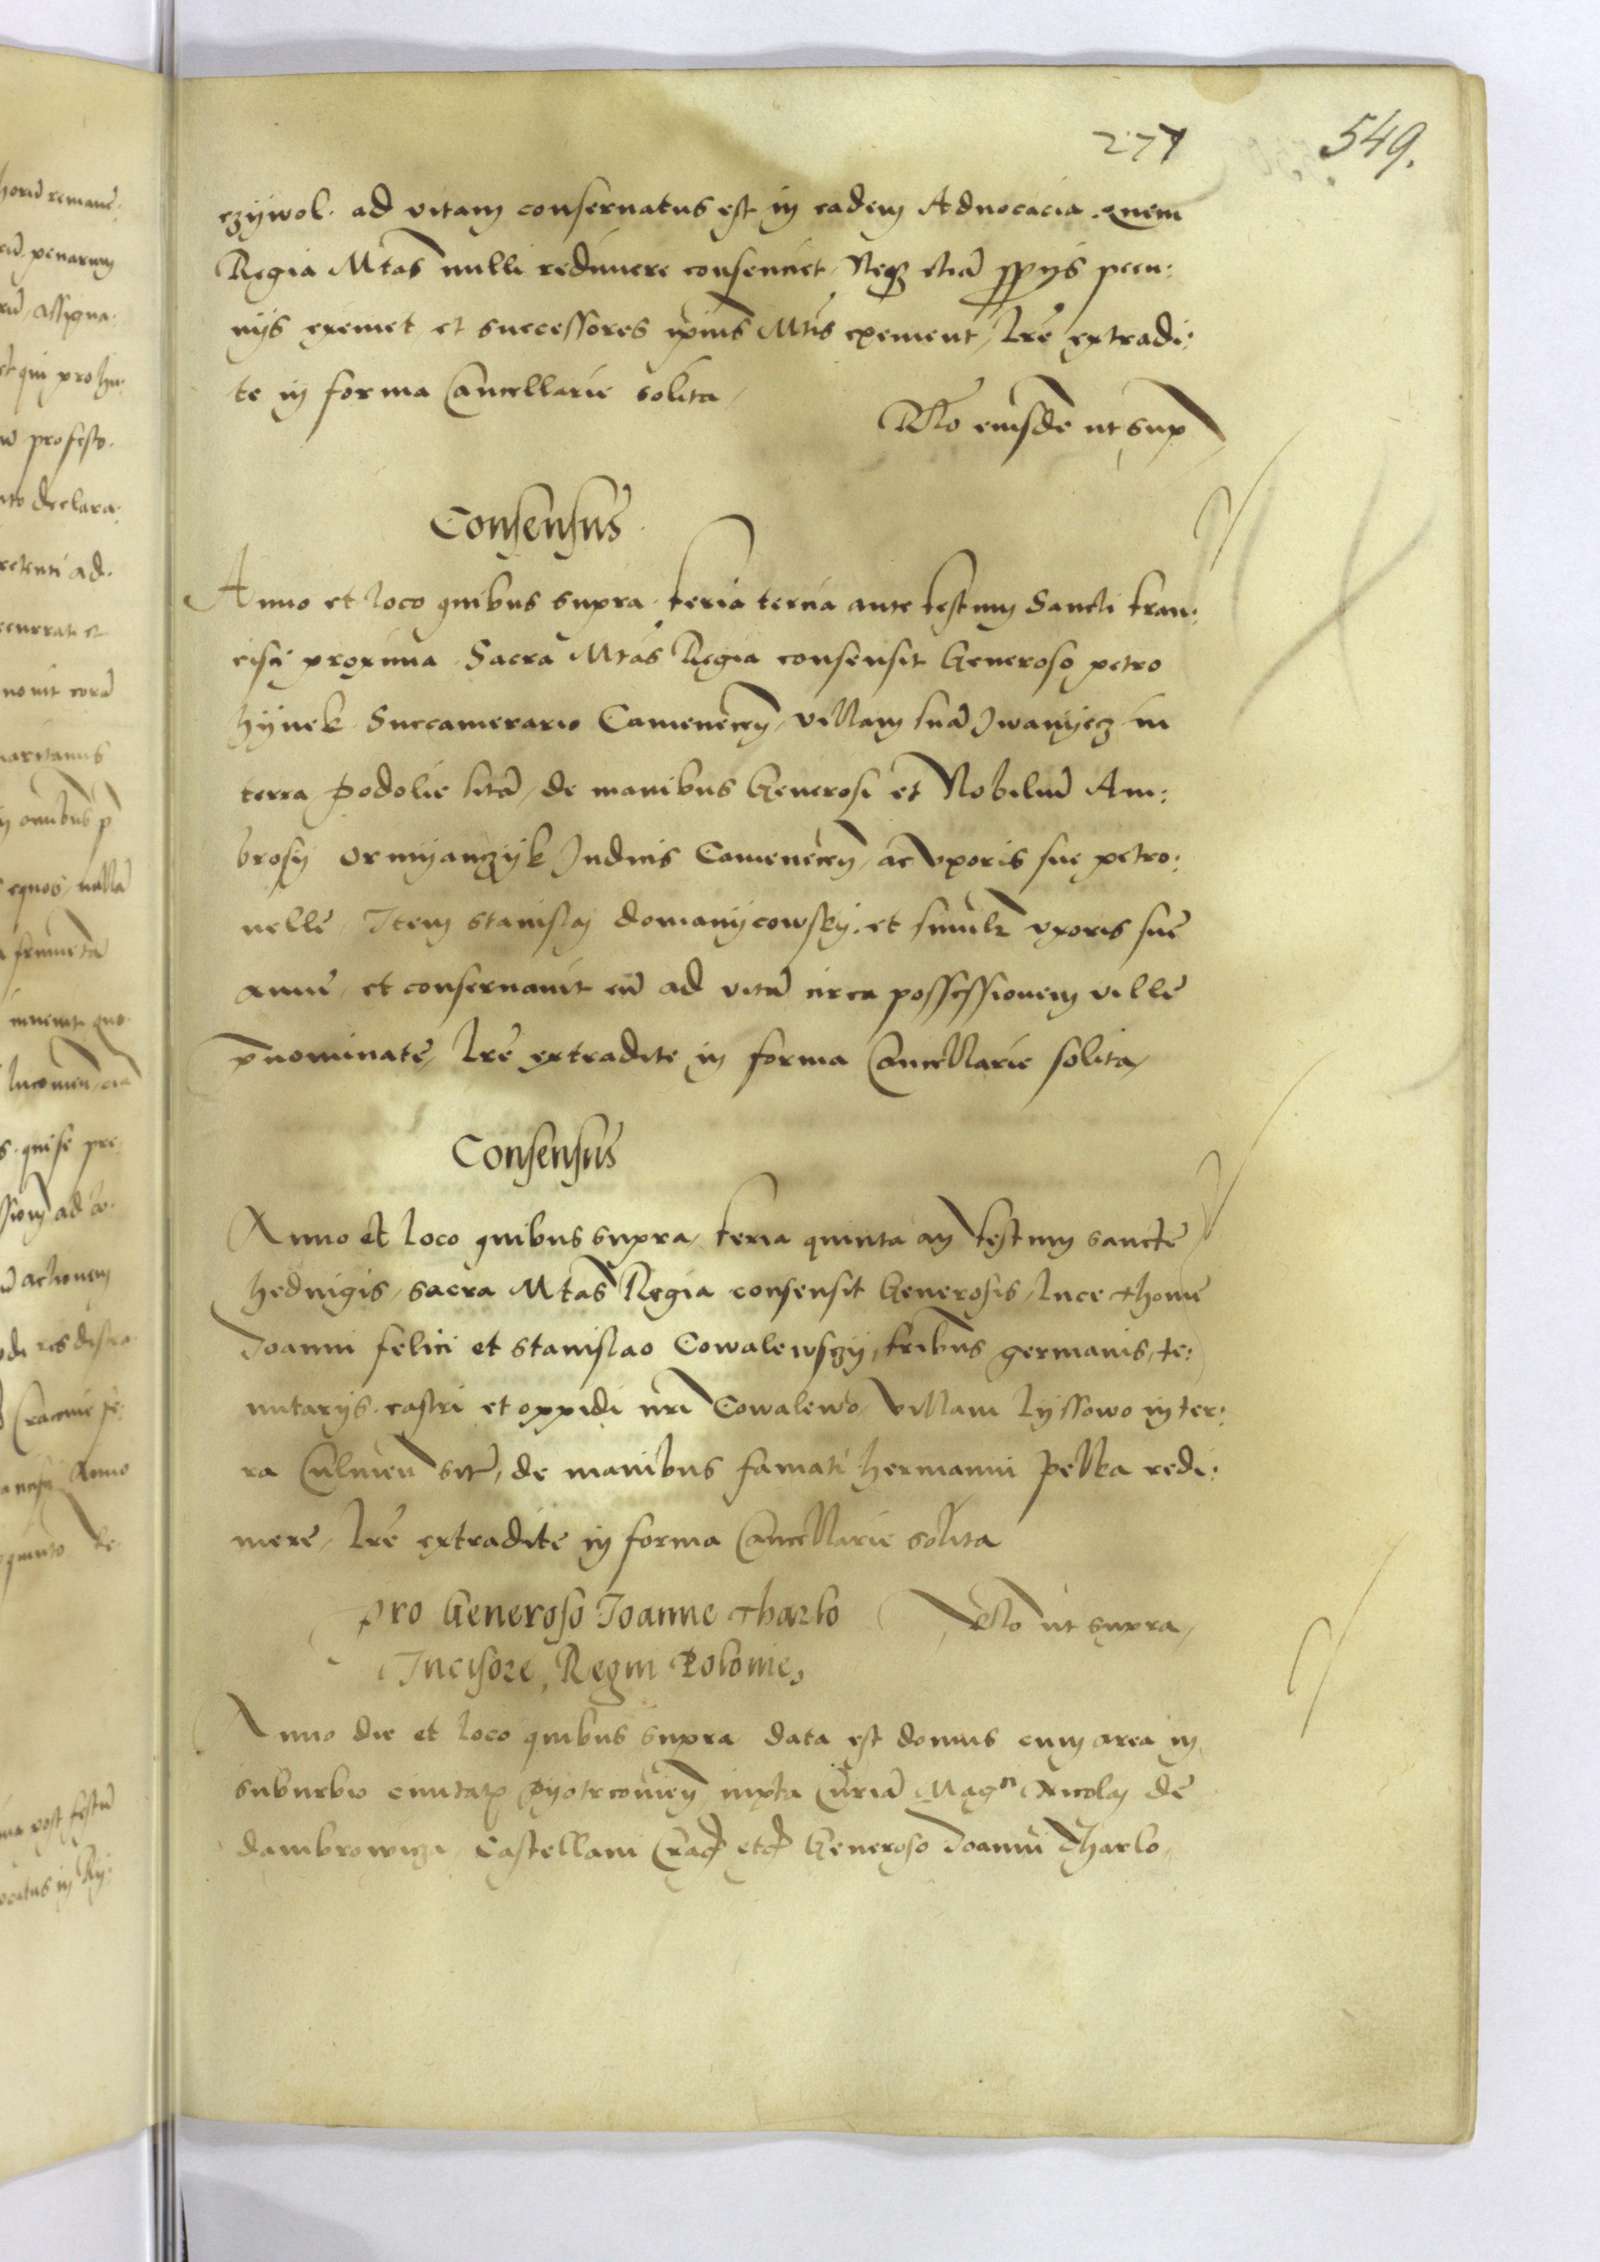 271 549.
czijwol. ad vitam conservatus est in eadem Advocacia. Quem
Regia Mtas nulli redimere consenciet Neq3 etia ppiis pecu:
niis exemet et successores ipius Mtis exement, lre extradi:
te in forma Cancellarie solita,
Rlo eiusde ut sup
Consensus
Anno et loco quibus supra. feria tercia ante festum Sancti fran:
cisci proxima Sacra Mtas Regia consensit Generoso petro
hijnek Succamerario Camenecen, villam sua Jwanijcz in
terra podolie sita, de manibus Generosi et Nobiliu Am:
brosij ormijanczijk Judicis Camenecen, ac vxoris sue petro:
nelle, Item stanislaj domanijcowskij. et similr vxoris sue
anne, et conservavit eu ad vita circa possessionem ville
pnominate, lre extradite in forma Cancellarie solita,
Consensus
Anno et loco quibus supra, feria quinta an festum sancte
hedvigis, sacra Mtas Regia consensit Generosis, luce thome
Joanni felici et stanislao Cowalewsczij, fribus germanis, te:
nutarijs. castri et oppidi nri Cowalewo, villam lijssowo in ter:
ra Culmen sit, de manibus famati hermanni pelka redi:
mere, lre extradite in forma Cancellarie solita
pro Generoso Joanne tharlo
Incisore, Regni Polonie,
Rlo ut supra,
Anno die et loco quibus supra data est domus cum area in
suburbio civitatis pijotrcovien iuxta Curia Magn Nicolaj de
dambrowicza Castellani Crac etc Generoso Joanni tharlo,